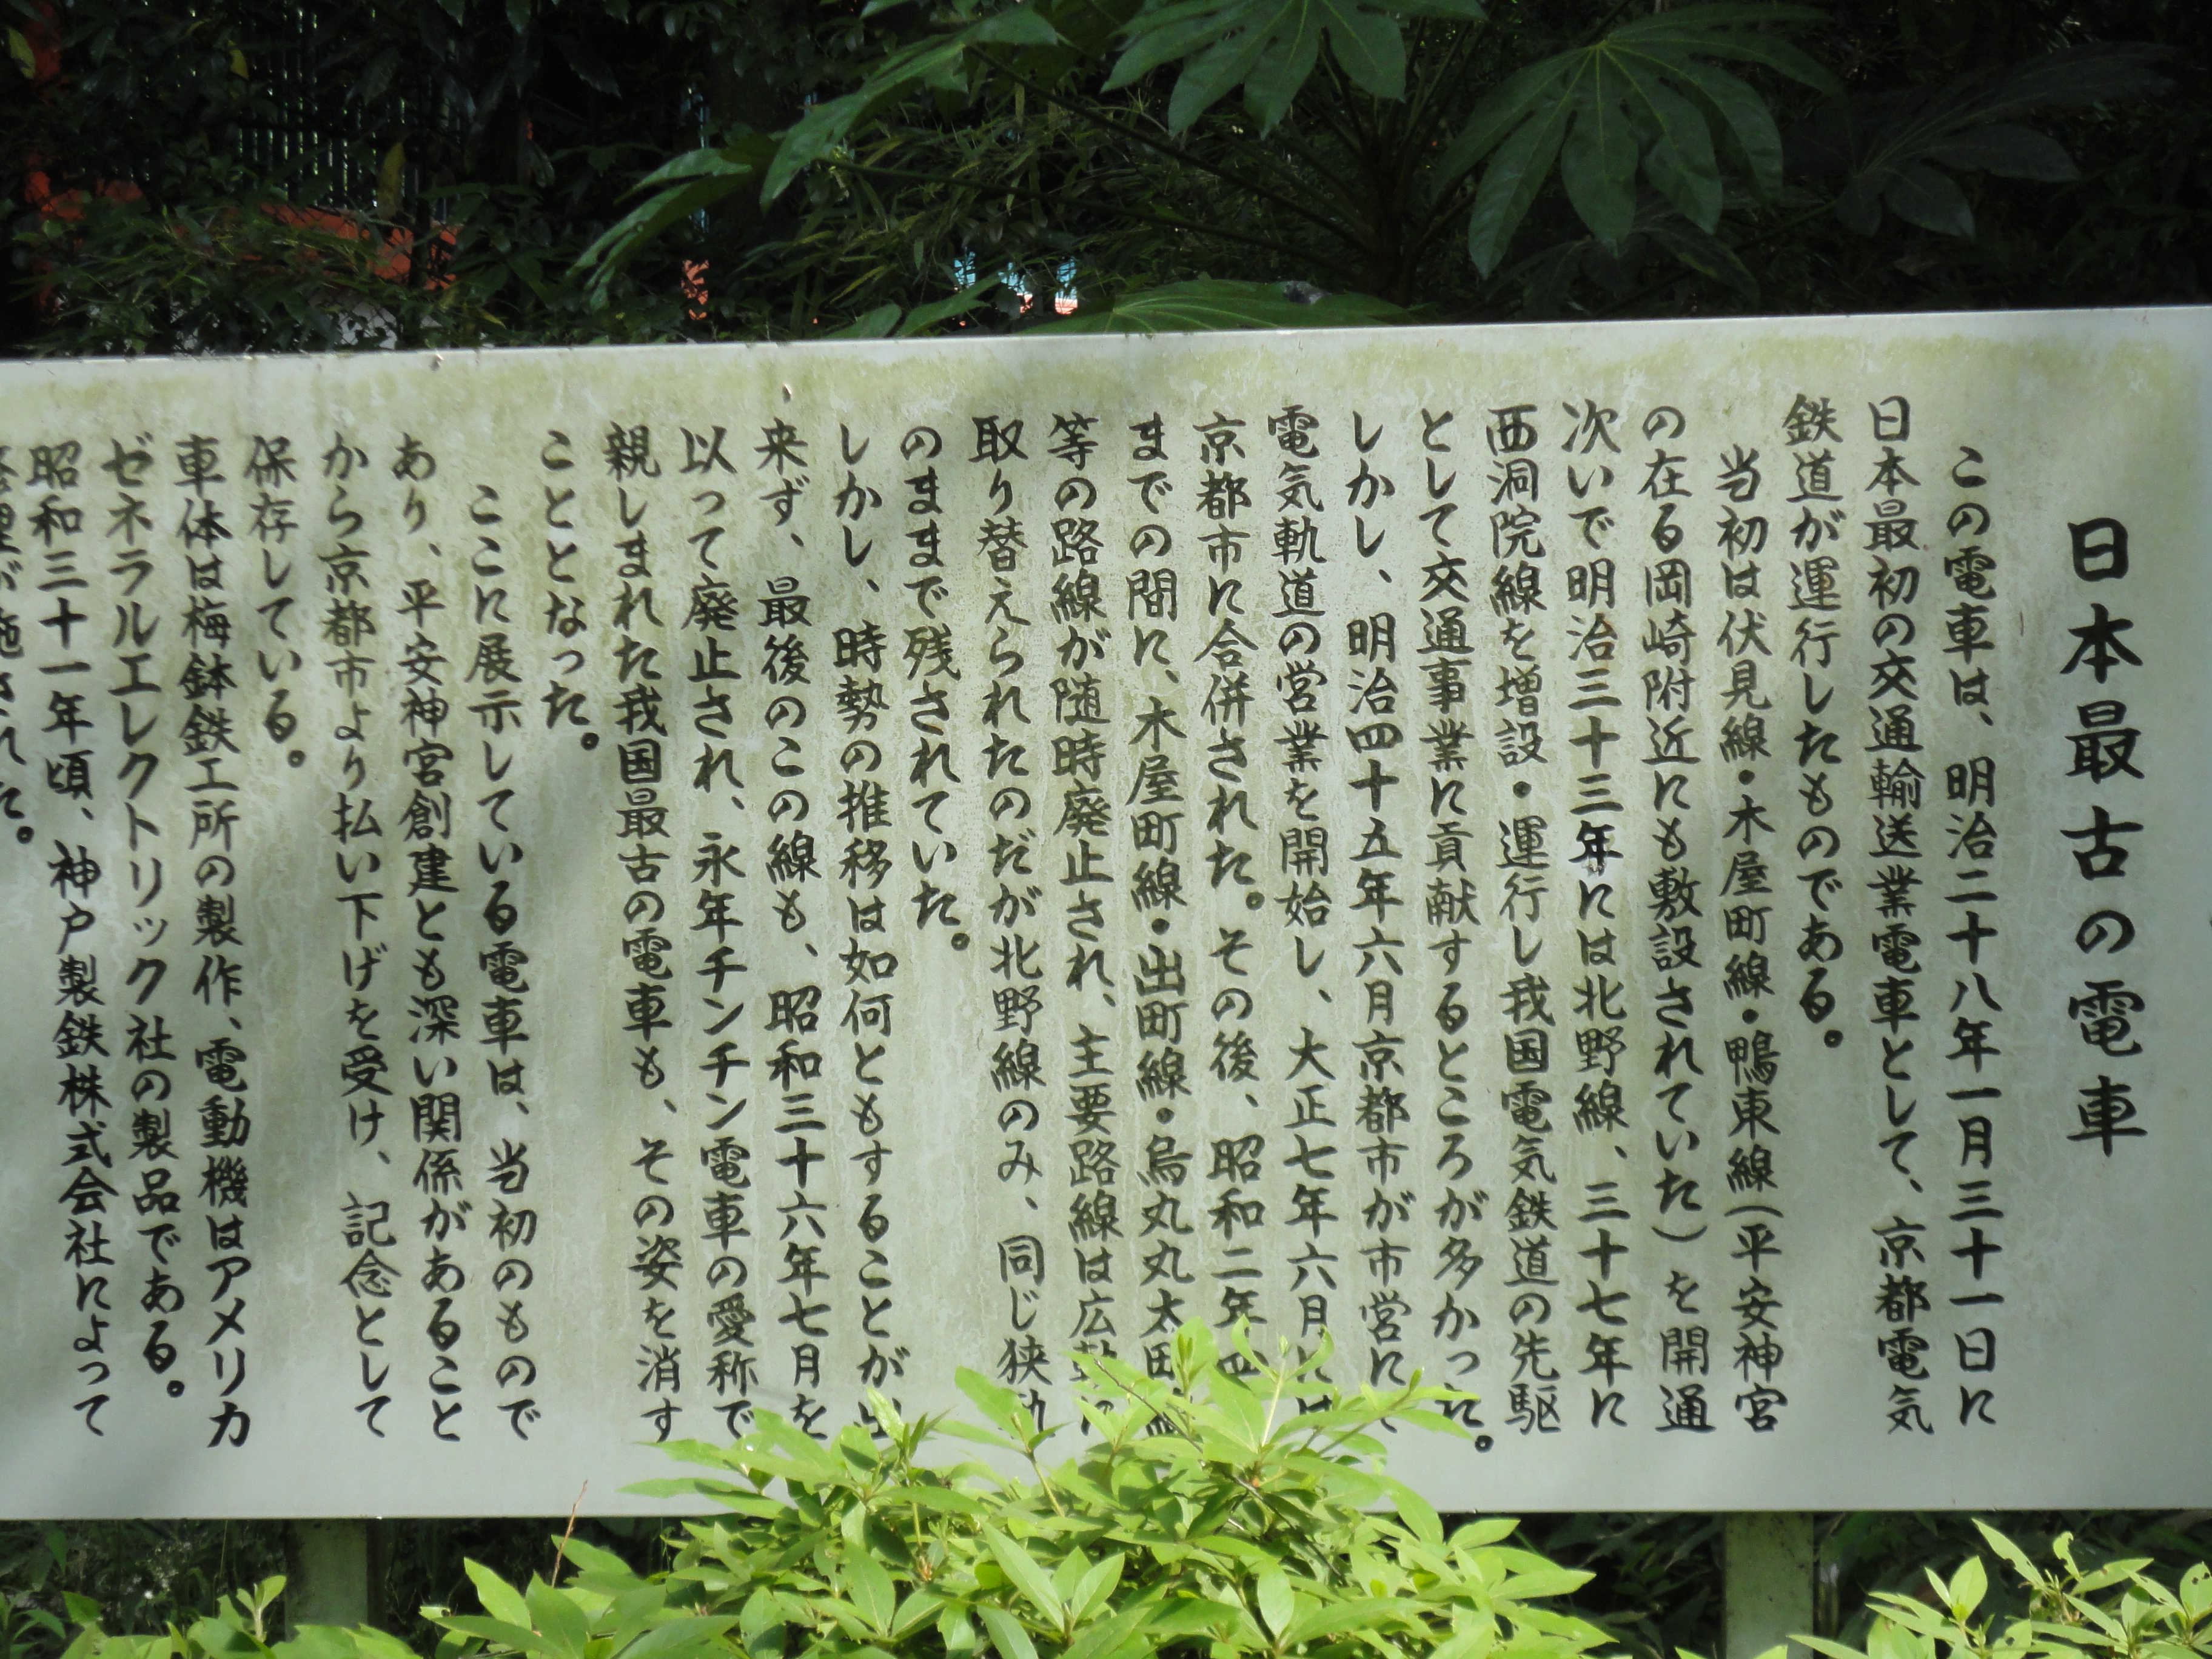 日本最古の電車
この電車は、明治二十八年一月三十一日に
日本最初の交通輸送業電車として、京都電気
鉄道が運行したものである。
当初は伏見線・木屋町線・鴨東線(平安神宮
の在る岡崎附近にも敷設されていた)を開通
次いで明治三十三年には北野線、三十七年に
西洞院線を増設・運行し我国電気鉄道の先駆
として交通事業に貢献するところが多かった。
しかし、明治四十五年六月京都市が市営にて
電気軌道の営業を開始し、大正七年六月には
京都市に合併された。その後、昭和二年四
までの間に、木屋町線・出町線・烏丸丸太町線
等の路線が随時廃止され、主要路線は広軌に
取り替えられたのだが北野線のみ、同じ狭軌
のままで残されていた。
しかし、時勢の推移は如何ともすることが出
来ず、最後のこの線も、昭和三十六年七月を
以って廃止され、永年チンチン電車の愛称で
親しまれた我国最古の電車も、その姿を消す
こととなった。
ここに展示している電車は、当初のもので
あり、平安神宮創建とも深い関係があること
から京都市より払い下げを受け、記念として
保存している。
車体は梅鉢鉄工所の製作、電動機はアメリカ
ゼネラルエレクトリック社の製品である。
昭和三十一年頃、神戸製鉄株式会社によって
修理が施された。